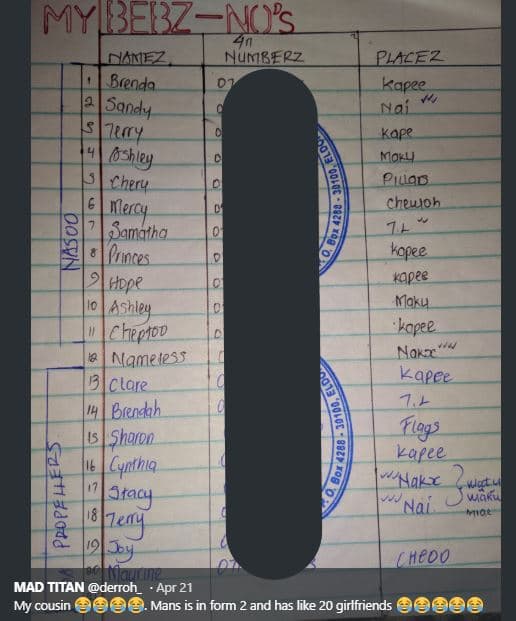 MY BEBZ-NO'S
NAMEZ 4n NUMBERZ PLACEZ
NASOD
1 Brenda 07 Kapee
2 Sandy 0 Nai
3 Terry 0 Kape
4 Ashley 0 Moku
5 Chery 0 Pillars
6 Mercy 0
7 Samatha 0 7.L
8 Princes 0 Kopee
9 Hope 0 Kapee
10 Ashley 0 Moku
11 Cheptoo 0 Kopee
12 Nameless Nakx
PROPELLERS
13 Clare 0 Kapee
14 Brendah 0 7.L
15 Sharon Flags
16 Cynthia Kapee
17 Stacy Nakx
18 Terry Nai
watu
waku
19 Joy
20 Maurine 07 CHEDO
O. Box 4288 - 30100, ELDO
O. Box 4288 - 30100, ELDO
MAD TITAN @derroh_ · Apr 21
My cousin 😂😂😂😂. Mans is in form 2 and has like 20 girlfriends 😂😂😂😂😂